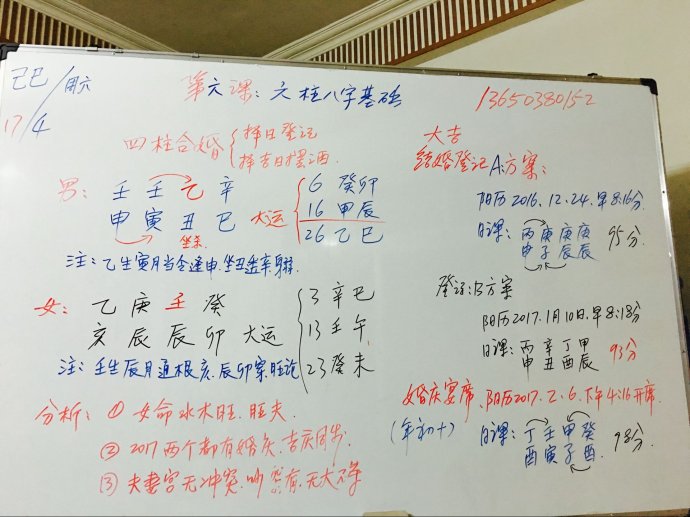 己巳/周六
17/4
第六课：六柱八字基础
13650380152
四柱合婚{择日登记
择吉日摆酒.
男：壬 壬 乙 辛
申 寅 丑 巳 大运
坐未.
6 癸卯
16 甲辰
26 乙巳
注：乙生寅月当令逢申.坐丑金辛.弱.
女：乙 庚 壬 癸
亥 辰 辰 卯 大运
3 辛巳
13 壬午
23 癸未
注：壬生辰月通根亥.辰卯寅.旺论
分析：① 女命水木旺.旺夫
② 2017两个都有婚庆.吉庆同步.
③ 夫妻宫无冲突.吵 有.无大碍
大吉
结婚登记A方案：
阳历2016.12.24.早8:16分.
日课：丙庚庚庚
申子辰辰
95分
登记：B方案
阳历2017.1月10日.早8:18分
日课：丙辛丁甲
申丑酉辰
93分
婚庆宴席.阳历2017.2.6.下午4:16开席.
(年初十)
日课：丁壬甲癸
酉寅子酉
98分.